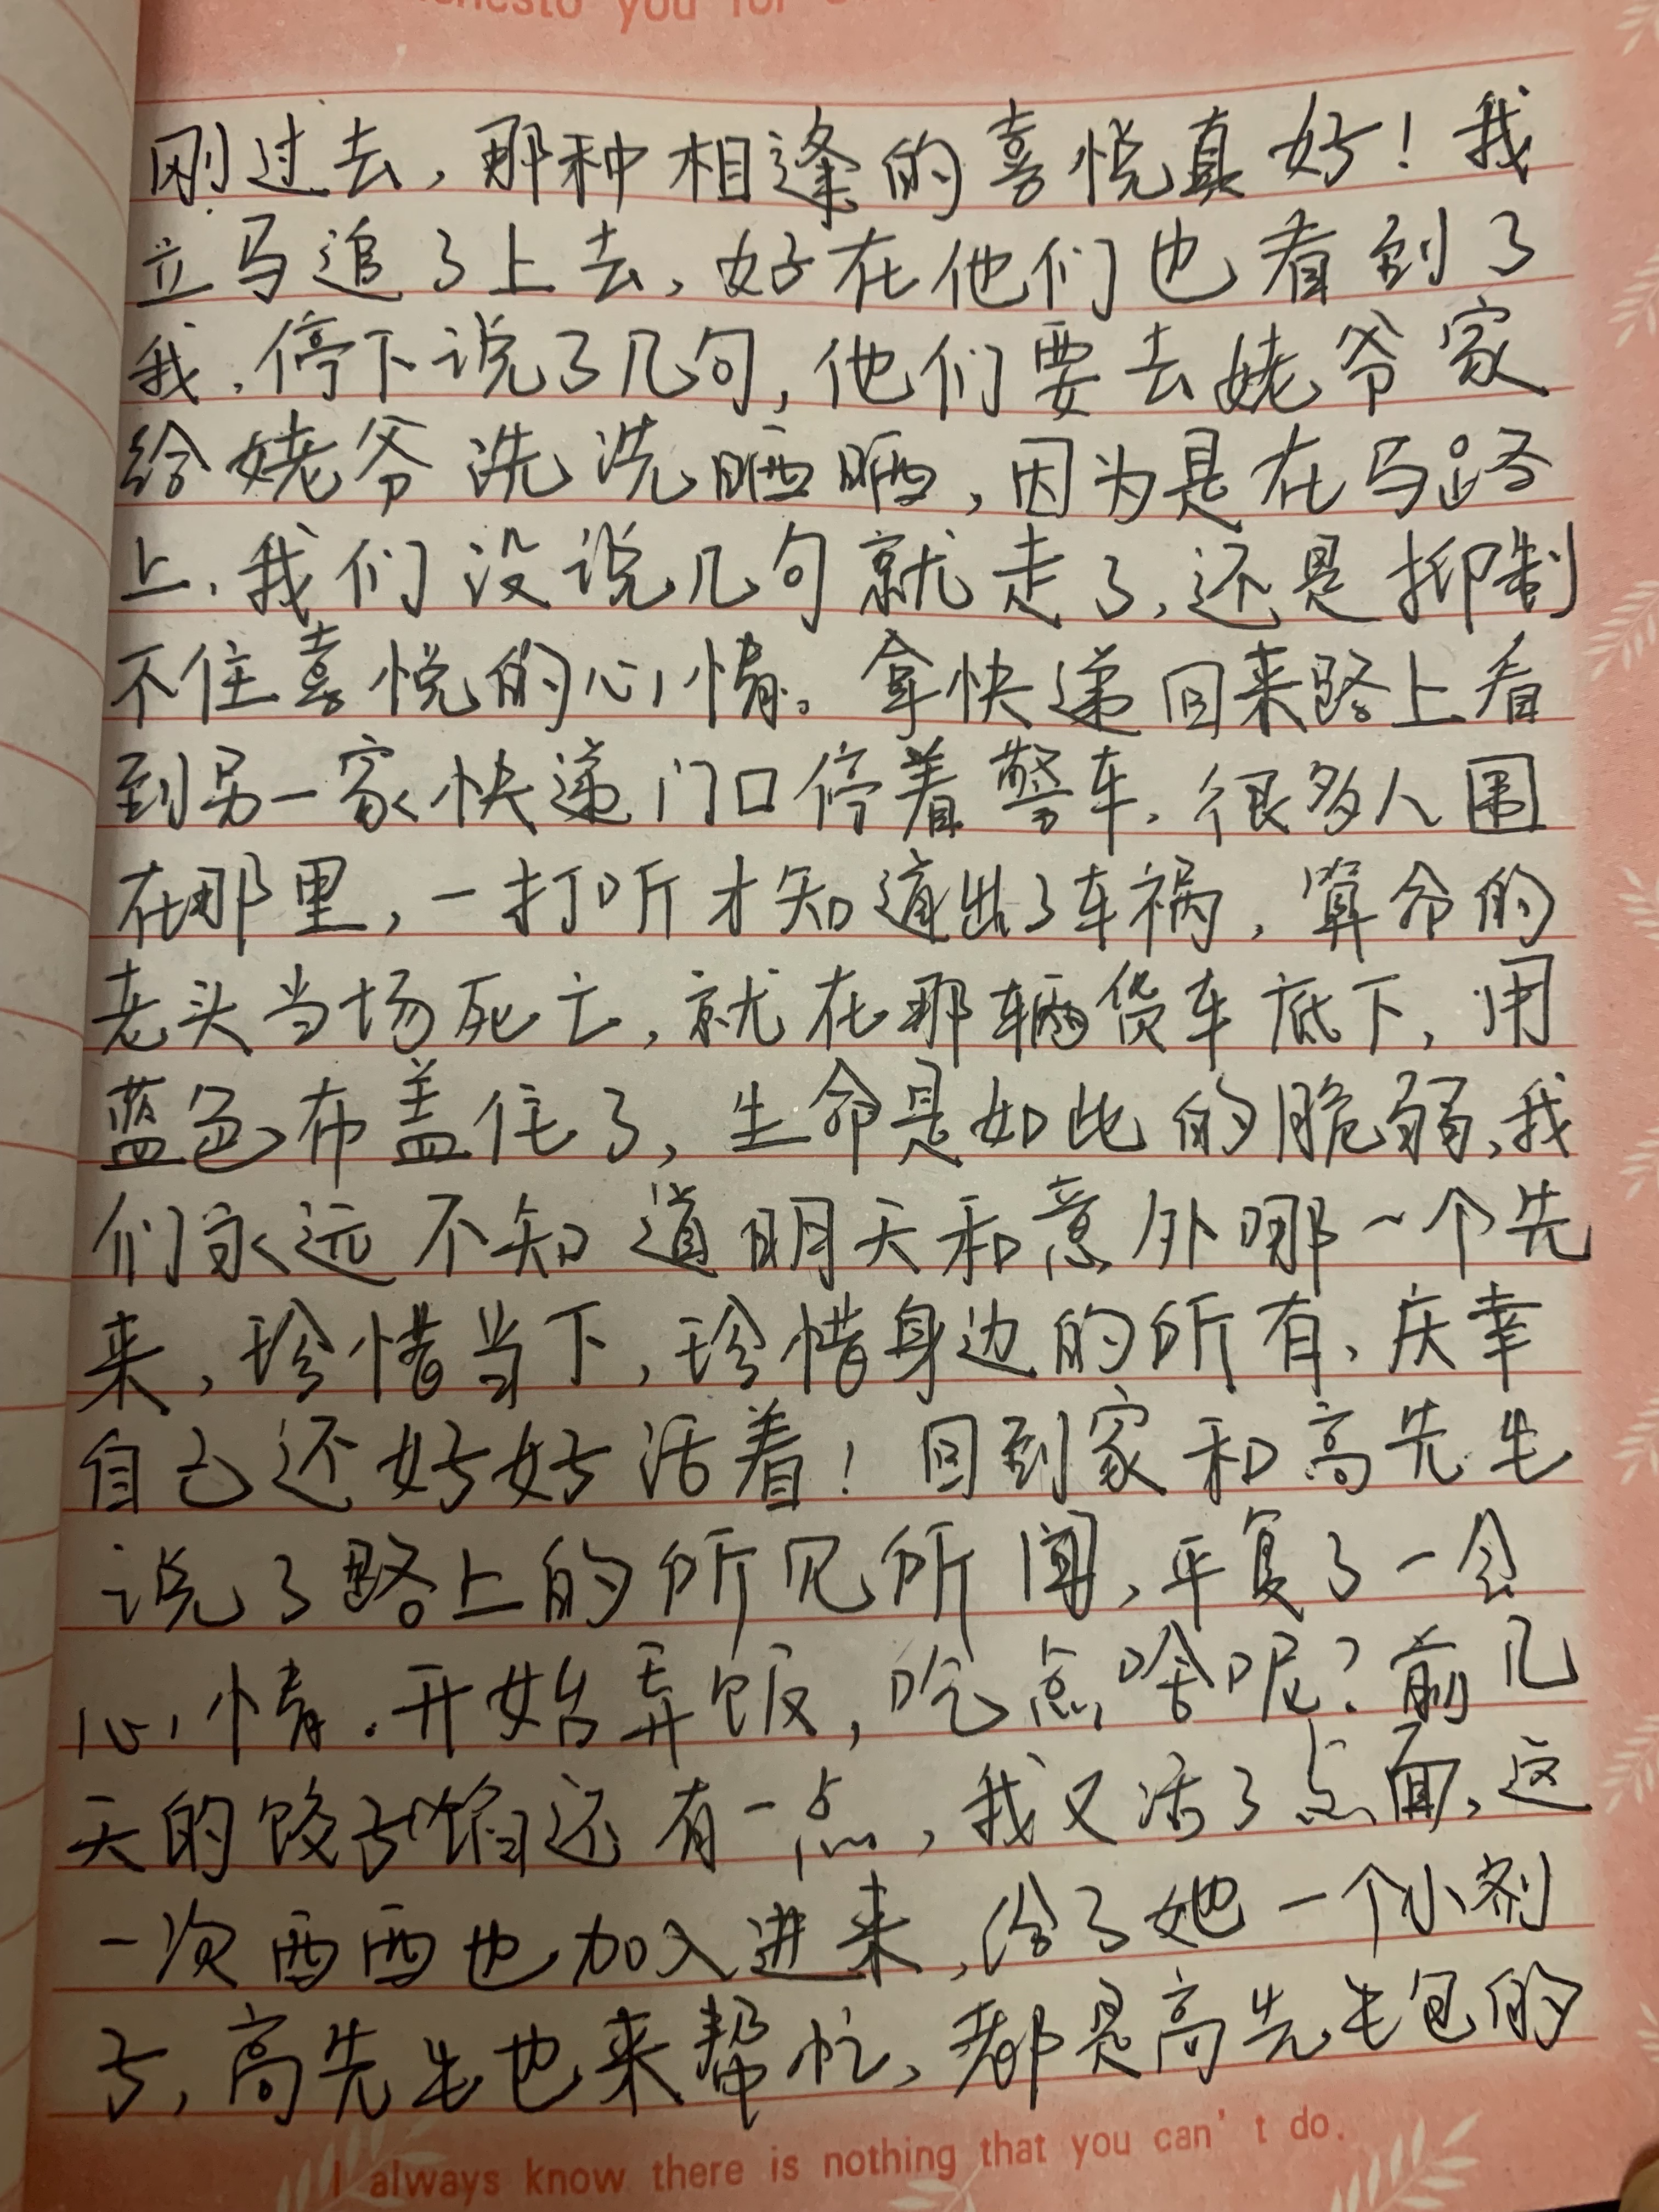 you for
刚过去，那种相逢的喜悦真好！我
立马追了上去，好在他们也看到了
我，停下说了几句，他们要去姥爷家
给姥爷洗洗晒晒，因为是在马路
上，我们没说几句就走了，还是抑制
不住喜悦的心情。拿快递回来路上看
到另一家快递门口停着警车，很多人围
在那里，一打听才知道出了车祸，算命的
老头当场死亡，就在那辆货车底下，用
蓝色布盖住了，生命是如此的脆弱，我
们永远不知道明天和意外哪一个先
来，珍惜当下，珍惜身边的所有，庆幸
自己还好好活着！回到家和高先生
说了路上的所见所闻，平复了一会
心情。开始弄饭，吃点啥呢？前几
天的饺子馅还有一点，我又活了点面，这
一次西西也加入进来，给了她一个小剂
子，高先生也来帮忙，都是高先生包的
I always know there is nothing that you can't do.